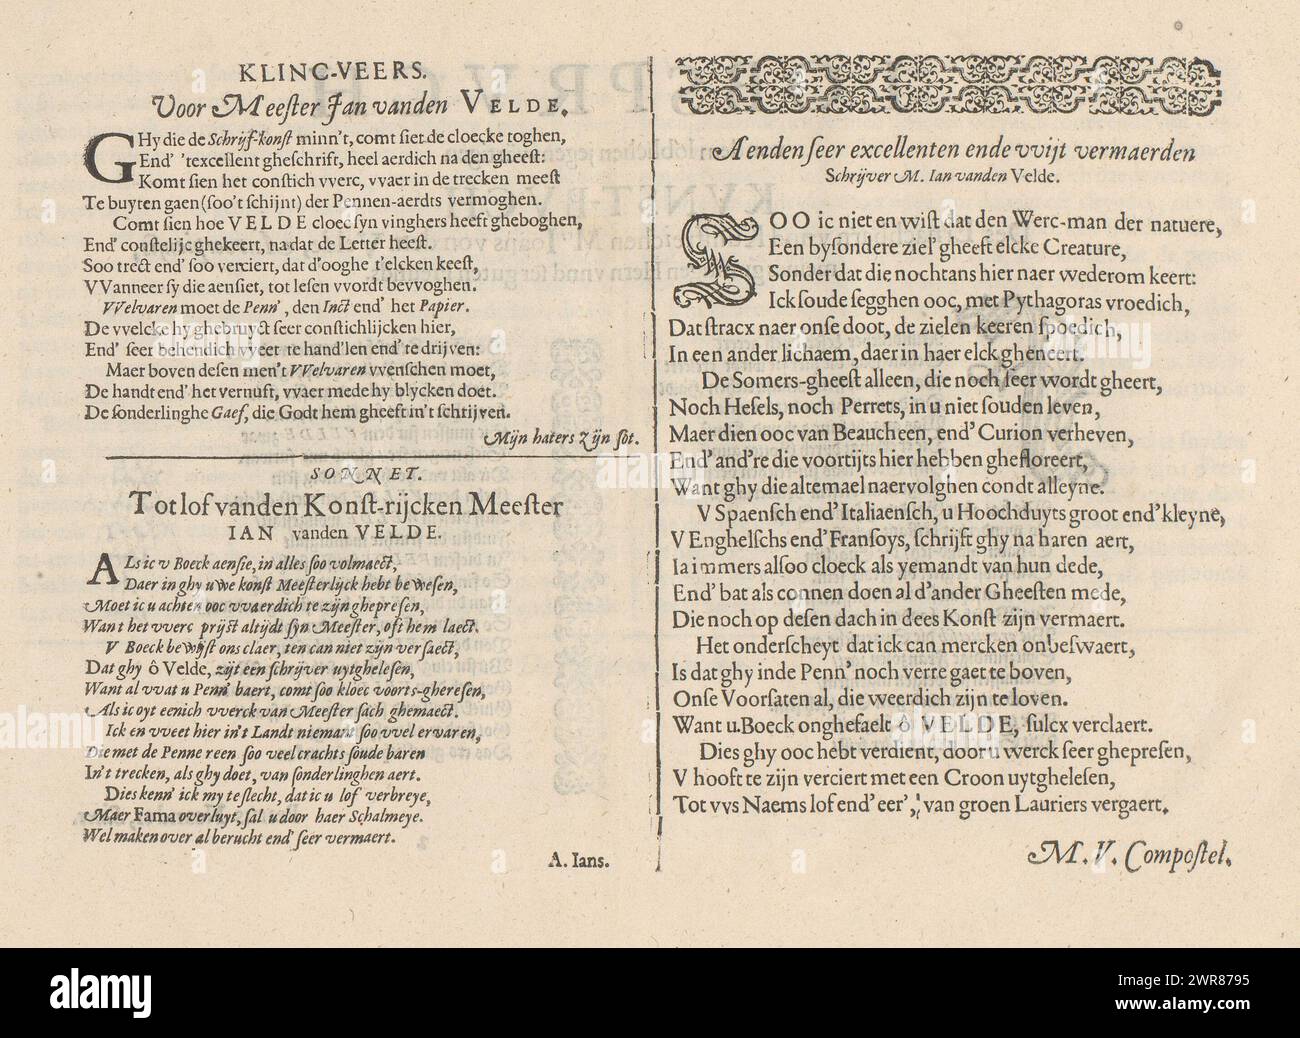 KLINC-VEERS.
Voor Meeſter Jan vanden VELDE.
GHy die de Schrijf-konſt minn't, comt ſiet de cloecke toghen,
End' 'texcellent gheſchrift, heel aerdich na den gheeſt:
Komt ſien het conſtich vverc, vvaer in de trecken meeſt
Te buyten gaen (ſoo't ſchijnt) der Pennen-aerdts vermoghen.
Comt ſien hoe VELDE cloec ſyn vinghers heeft gheboghen,
End' conſtelijc ghekeert, na dat de Letter heeſt.
Soo trect end' ſoo verciert, dat d'ooghe t'elcken keeſt,
VVanneer ſy die aenſiet, tot leſen vvordt bevvoghen.
VVelvaren moet de Penn', den Inct end' het Papier.
De vvelcke hy ghebruyct ſeer conſtichlijcken hier,
End' ſeer behendich vveet te hand'len end' te drijven:
Maer boven deſen men't VVelvaren vvenſchen moet,
De handt end' het vernuft, vvaer mede hy blycken doet.
De ſonderlinghe Gaef, die Godt hem gheeft in't ſchrijven.
Mijn haters zijn ſot.
SONNET.
Tot lof vanden Konſt-rijcken Meeſter
IAN vanden VELDE.
ALs ic v Boeck aenſie, in alles ſoo volmaect,
Daer in ghy uwe konſt Meeſterlijck hebt beweſen,
Moet ic u achten ooc vvaerdich te zijn ghepreſen,
Want het vverc prijſt altijdt ſyn Meeſter, oft hem laect.
V Boeck bewijſt ons claer, ten can niet zijn verſaect,
Dat ghy ô Velde, zijt een ſchrijver uytgheleſen,
Want al vvat u Penn' baert, comt ſoo kloec voorts-ghereſen,
Als ic oyt eenich vverck van Meeſter ſach ghemaect.
Ick en vveet hier in't Landt niemant ſoo vvel ervaren,
Die met de Penne reen ſoo veel crachts ſoude baren
In't trecken, als ghy doet, van ſonderlinghen aert.
Dies kenn' ick my te ſlecht, dat ic u lof verbreye,
Maer Fama overluyt, ſal u door haer Schalmeye.
Wel maken over al berucht end' ſeer vermaert.
A. Ians.
Aenden ſeer excellenten ende vvijt vermaerden
Schrijver M. Ian vanden Velde.
SOO ic niet en wiſt dat den Werc-man der natuere,
Een byſondere ziel' gheeft elcke Creature,
Sonder dat die nochtans hier naer wederom keert:
Ick ſoude ſegghen ooc, met Pythagoras vroedich,
Dat ſtracx naer onſe doot, de zielen keeren ſpoedich,
In een ander lichaem, daer in haer elck gheneert.
De Somers-gheeſt alleen, die noch ſeer wordt gheert,
Noch Heſels, noch Perrets, in u niet ſouden leven,
Maer dien ooc van Beaucheen, end' Curion verheven,
End' and're die voortijts hier hebben ghefloreert,
Want ghy die altemael naervolghen condt alleyne.
V Spaenſch end' Italiaenſch, u Hoochduyts groot end' kleyne,
V Enghelſchs end' Franſoys, ſchrijft ghy na haren aert,
Ia immers alſoo cloeck als yemandt van hun dede,
End' bat als connen doen al d'ander Gheeſten mede,
Die noch op deſen dach in dees Konſt zijn vermaert.
Het onderſcheyt dat ick can mercken onbeſwaert,
Is dat ghy inde Penn' noch verre gaet te boven,
Onſe Voorſaten al, die weerdich zijn te loven.
Want u Boeck onghefaelt ô VELDE, ſulcx verclaert.
Dies ghy ooc hebt verdient, door u werck ſeer ghepreſen,
V hooft te zijn verciert met een Croon uytgheleſen,
Tot vvs Naems lof end' eer', van groen Lauriers vergaert.
M. V. Compoſtel.
alamy
Image ID: 2WR8795
www.alamy.com